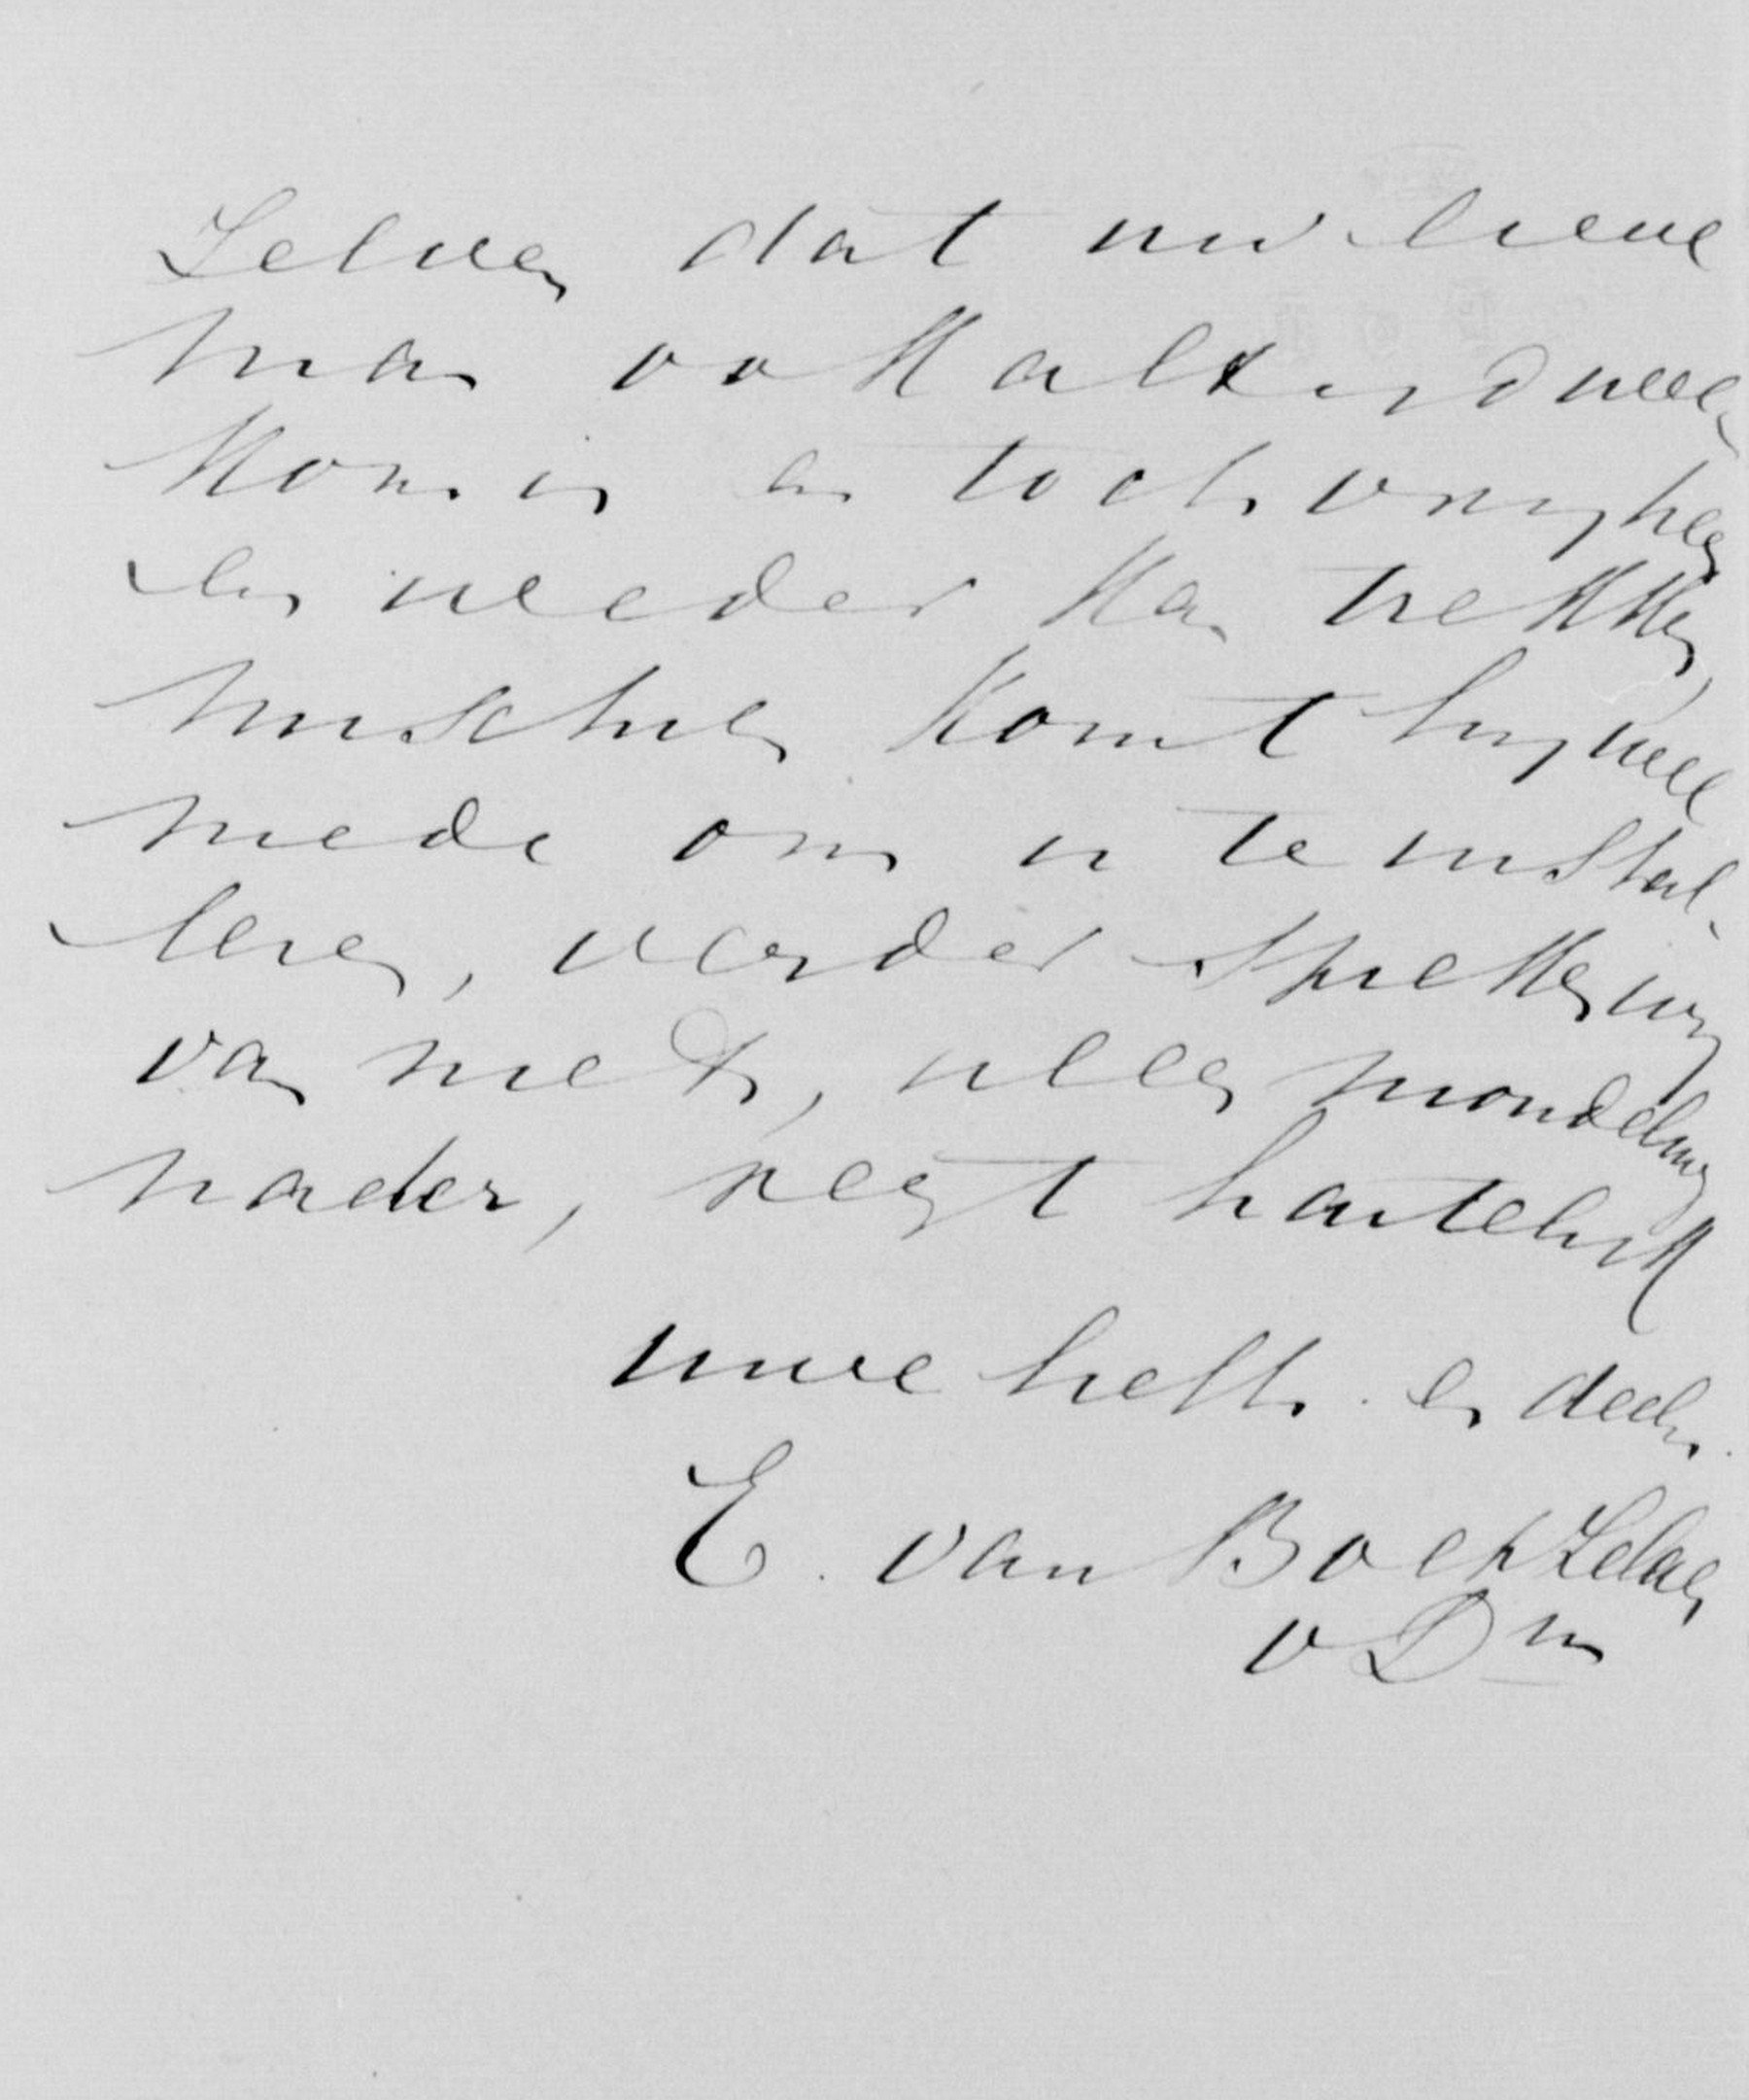 zelven dat uw lieve
man ook altijd wel
kom is en toch vrij heen
en weder kan trekken,
misschien komt hij wel
mede om u te instal-
leren, verder spreken wij
van niets, alleen mondeling
nader, zegt hartelijk
uwe liefh. en dech.
E. van Boetzelaer
v Dm